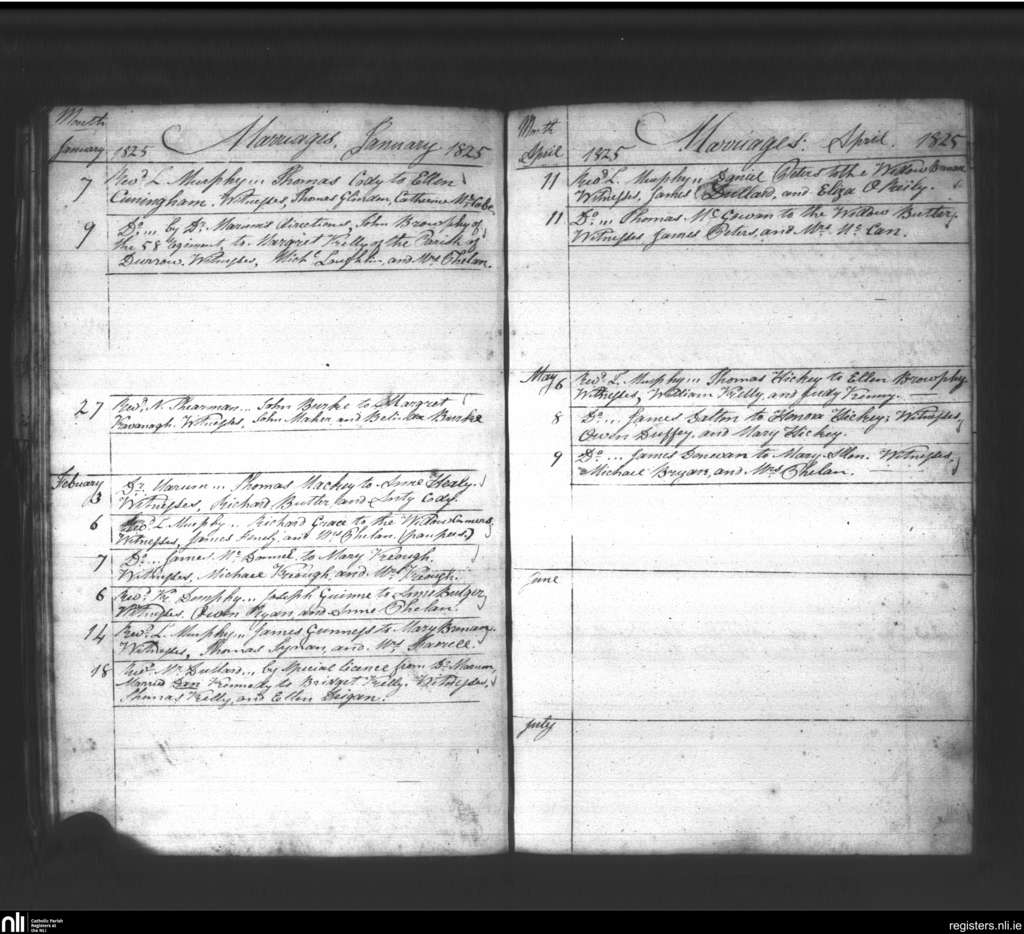 Month
January 1825 Marriages. January 1825
7 Revd. L. Murphy... Thomas Cody to Ellen
Cuningham. Witnesses, Thomas Catherine McCabe.
9 Do... by Dr. Marums directions, John Browphy of
the 58 Regiment to Margret Kelly of the Parish of
Durrow. Witnesses, Michl. Loughlin, and Mrs. Phelan.
27 Revd. N. Shearman... John Burke to Margret
Kavanagh. Witnesses, John Maher, and Belinda Burke
February
3 Dr. Marum... Thomas Mackey to Anne Healy.
Witnesses, Richard Butler, and Cody.
6 Revd. L. Murphy... Richard Grace to the Widow
Witnesses, James and Mrs. Phelan. (paupers.)
7 Do... James Mc.Daniel to Mary Keough.
Witnesses, Michael Keough, and Keough.
6 Revd. Mr. Dunphy... Joseph Guinne to Bulger
Witnesses, Owen Ryan, and Anne Phelan.
14 Revd. L. Murphy... James Gunness to Mary Brenan.
Witnesses, Thomas and Mrs.
18 Revd. Mr. Dullard... by Special licence from Dr. Marum,
Married Kennedy to Bridget Kelly. Witnesses,
Thomas Kelly, and Ellen Deigan.
Month
April 1825 Marriages. April 1825
11 Revd. L. Murphy... Daniel Peters to the Widow Brenan
Witnesses, James Dullard, and Eliza O Reily.
11 Do... Thomas Mc.Gowan to the Widow Butler,
Witnesses James Peters, and Mrs. Mc.Can.
May 6 Revd. L. Murphy... Thomas Hickey to Ellen Browphy.
Witnesses, William Kelly, and Judy Kenny.
8 Do... James Dalton to Honora Hickey; Witnesses,
Owen Duffey, and Mary Hickey.
9 Do... James Donevan to Mary Allen. Witnesses,
Michael Bryan, and Mrs. Phelan.
June
July
nli
Catholic Parish
Registers at
the NLI
registers.nli.ie